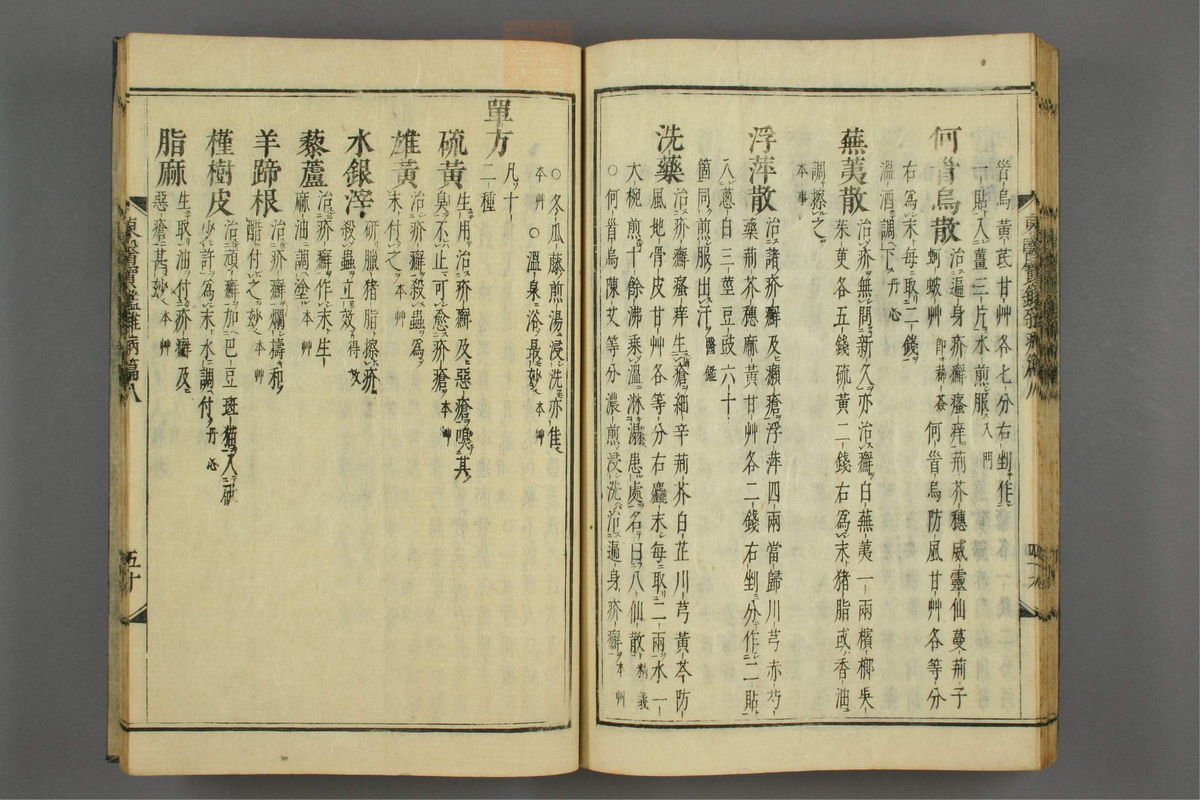 首烏黃芪甘艸各七分右剉作
一貼入薑三片水煎服入門
何首烏散
治遍身疥癬瘙痒荊芥穗威靈仙蔓荊子
蚵蚾艸卽蕣薟何首烏防風甘艸各等分
右爲末每取二錢
溫酒調下丹心
蕪荑散
治疥無問新久亦治癬白蕪荑一兩檳榔吳
茱萸各五錢硫黃二錢右爲末猪脂或香油
調擦之
本事
浮萍散
治諸疥癬及癩瘡浮萍四兩當歸川芎赤芍
藥荊芥穗麻黃甘艸各二錢右剉分作二貼
入葱白三莖豆豉六十
箇同煎服出汗醫鑑
洗藥
治疥癬瘙痒生瘡細辛荊芥白芷川芎黃芩防
風地骨皮甘艸各等分右麤末每取二兩水一
大椀煎十餘沸乘溫淋渫患處名曰八仙散精義
○何首烏陳艾等分濃煎浸洗治遍身疥癬本艸
○冬瓜藤煎湯浸洗亦佳
本艸○溫泉浴最妙本艸
單方
凡十
二種
硫黃
生用治疥癬及惡瘡嗅其
臭不止可愈疥瘡本艸
雄黃
治疥癬殺蟲爲
末付之本艸
水銀滓
研臘猪脂擦疥
殺蟲立效得效
藜蘆
治疥癬作末生
麻油調塗本艸
羊蹄根
治疥癬爛擣和
醋付之妙本艸
槿樹皮
治頑癬加巴豆斑猫入砒
少許爲末水調付丹心
脂麻
生取油付疥癬及
惡瘡甚妙本艸
東醫寶鑑雜病篇八
五十